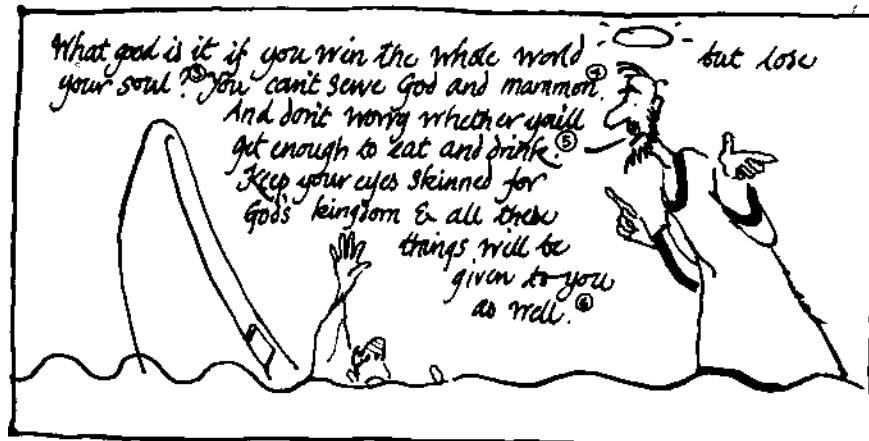 What good is it if you win the whole world but lose
your soul?③ You can't serve God and mammon.④
And don't worry whether you'll
get enough to eat and drink.⑤
Keep your eyes skinned for
God's kingdom & all these
things will be
given to you
as well.⑥